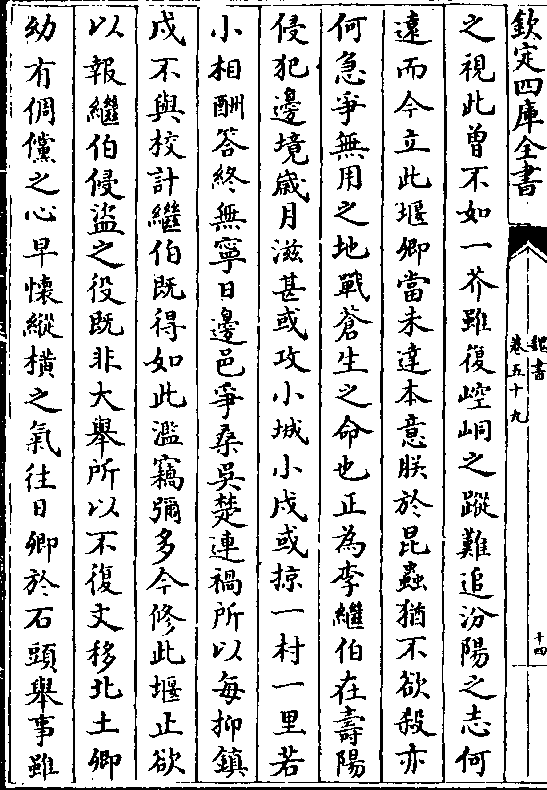 欽定四庫全書
魏書
卷五十九
十四
之視此曾不如一芥雖復崆峒之蹤難追汾陽之志何
遠而今立此堰卿當未達本意朕於昆蟲猶不欲殺亦
何急爭無用之地戰蒼生之命也正為李繼伯在壽陽
侵犯邊境歲月滋甚或攻小城小戍或掠一村一里若
小相酬答終無寧日邊邑爭桑吳楚連禍所以每抑鎮
戍不與校計繼伯既得如此濫竊彌多今修此堰止欲
以報繼伯侵盜之役既非大舉所以不復文移北土卿
幼有倜儻之心早懷縱橫之氣往日卿於石頭舉事雖